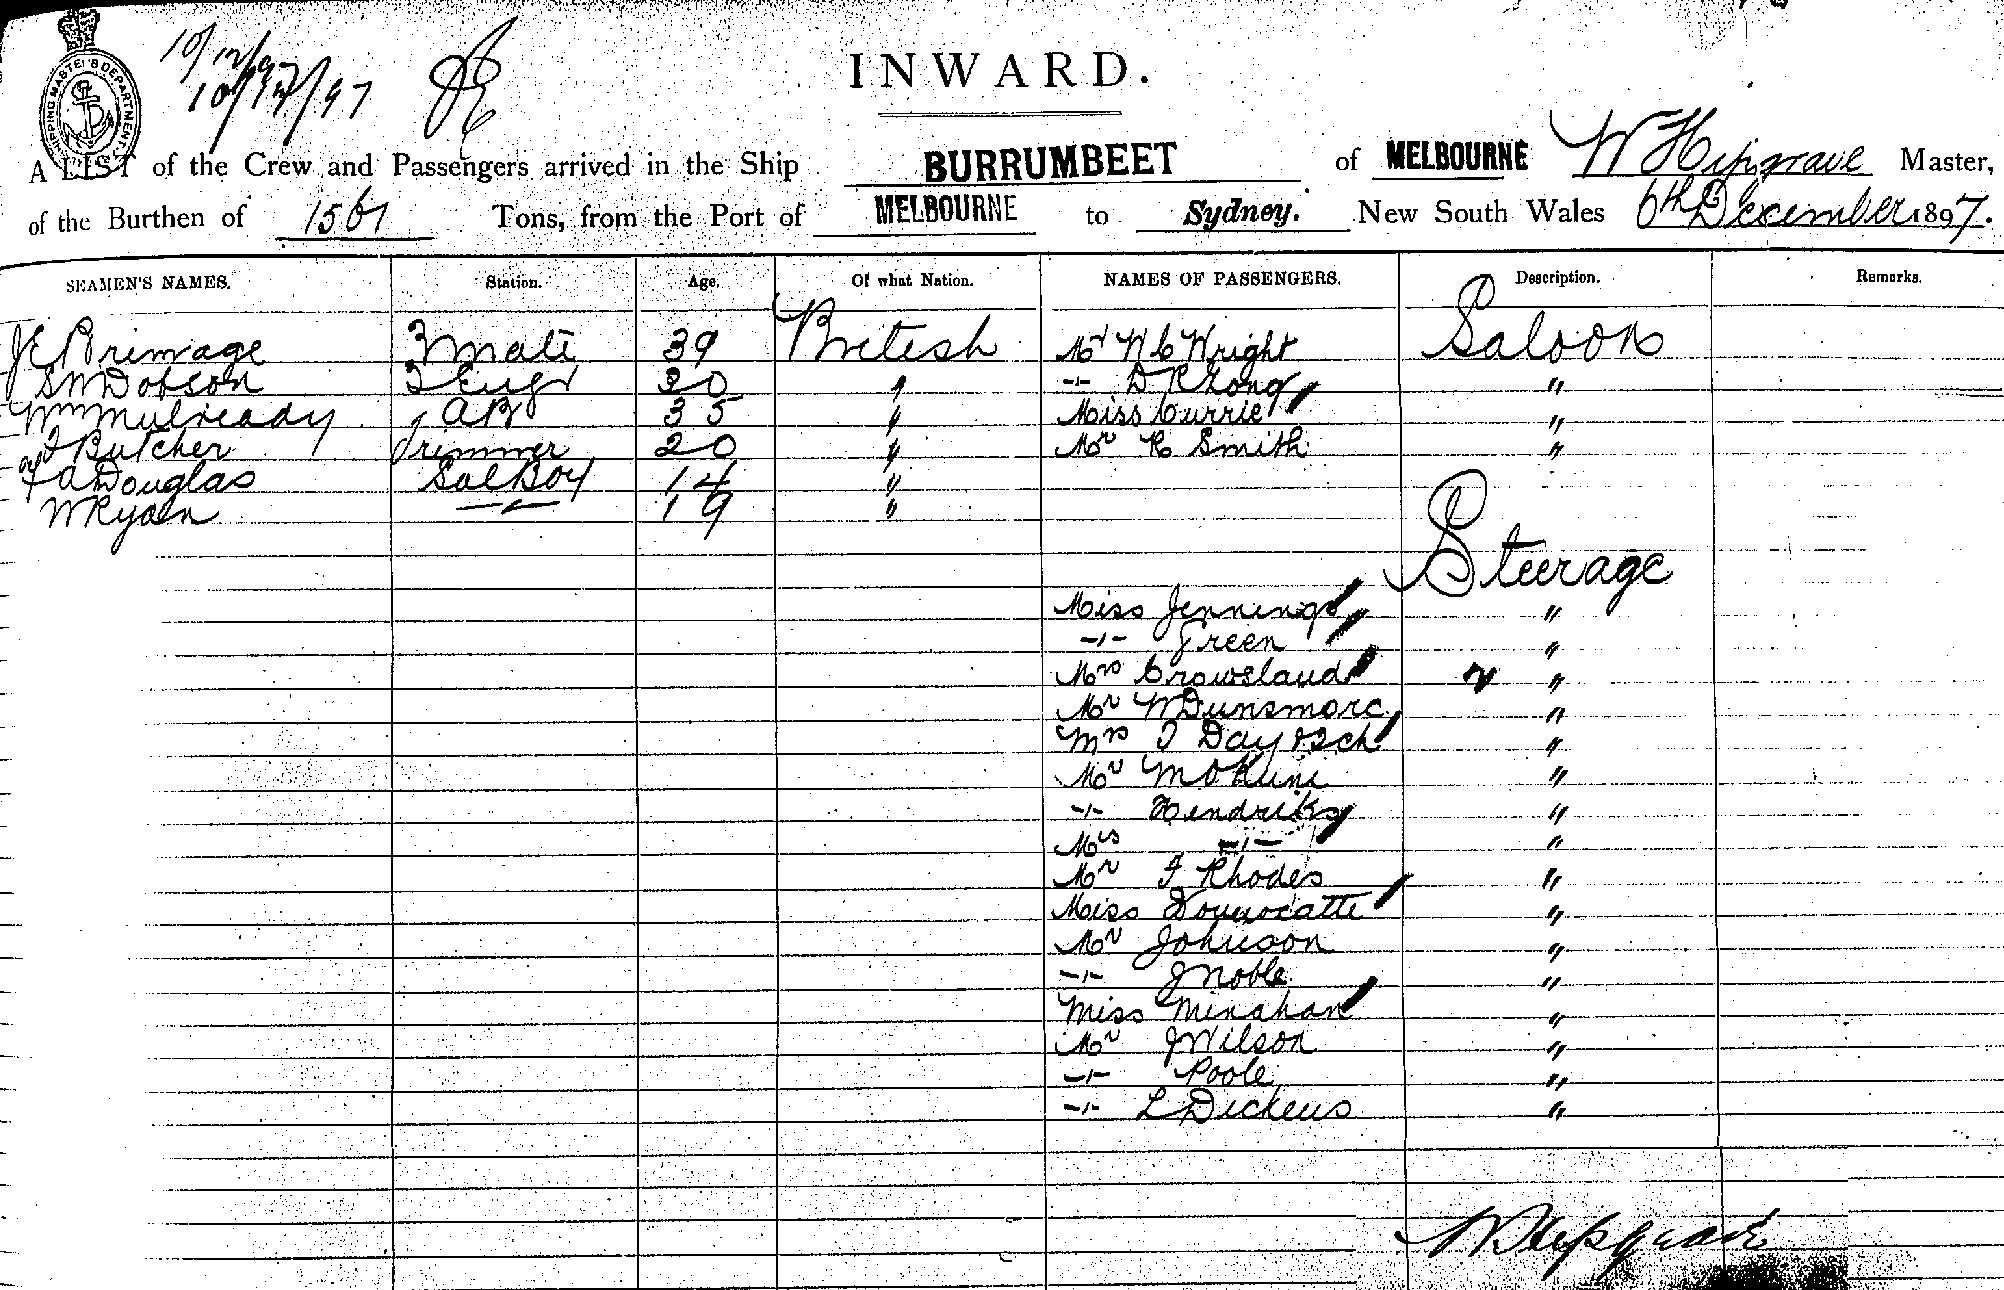 10/12/97
10/12/97
SHIPPING MASTER'S DEPARTMENT
INWARD.
A LIST of the Crew and Passengers arrived in the Ship BURRUMBEET of MELBOURNE W Hipgrave Master,
of the Burthen of Tons, from the Port of MELBOURNE to Sydney. New South Wales 6th December 1897.
SEAMEN'S NAMES. Station. Age. Of what Nation. NAMES OF PASSENGERS. Description. Remarks.
J E Primage 3 Mate 39 British Mr W C Wright Saloon
S W Dobson 3 Engr 30 " -"- D R Long "
Wm Mulready AB 35 " Miss Currie "
Butcher Trimmer 20 " Mr R Smith "
A Douglas Sal Boy 14 "
W Ryan -"- 19 "
Steerage
Miss Jennings "
-"- Green "
Mrs Crowsland 2 "
Mr W Dunsmore "
Mrs Day & 2 ch "
Mr "
-"- Hendriks "
Mrs -"- "
Mr Rhodes "
Miss "
Mr Johnson "
-"- J Noble "
Miss Minahan "
Mr J Wilson "
-"- Poole "
-"- L Dickens "
W Hipgrave